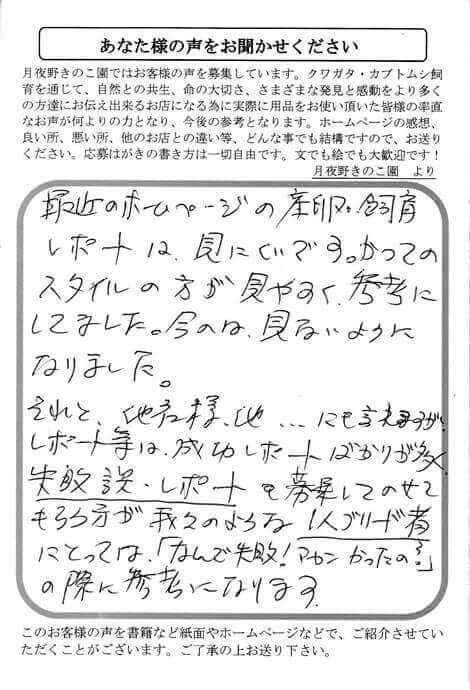 あなた様の声をお聞かせください
月夜野きのこ園ではお客様の声を募集しています。クワガタ・カブトムシ飼
育を通じて、自然との共生、命の大切さ、さまざまな発見と感動をより多く
の方達にお伝え出来るお店になる為に実際に用品をお使い頂いた皆様の率直
なお声が何よりの力となり、今後の参考となります。ホームページの感想、
良い所、悪い所、他のお店との違い等、どんな事でも結構ですので、お送り
ください。応募はがきの書き方は一切自由です。文でも絵でも大歓迎です！
月夜野きのこ園　より
最近のホームページの産卵・飼育
レポートは、見にくいです。かつての
スタイルの方が見やすく、参考に
してました。今のは、見ないように
なりました。
それと、他社様、他…にも言えますが、
レポート等は、成功レポートばかりが多く
失敗談・レポートも募集してのせて
もらう方が我々のような1人ブリード者
にとっては、「なんで失敗！アカンかったの？」
の際に参考になります。
このお客様の声を書籍など紙面やホームページなどで、ご紹介させてい
ただくことがございます。ご了承の上お送り下さい。